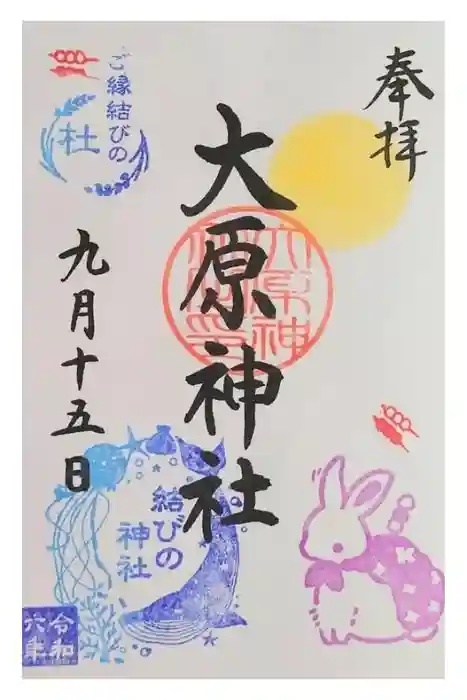 奉拝
大原神社
大原神社
ご縁結びの
社
九月十五日
結びの
神社
令和
六年